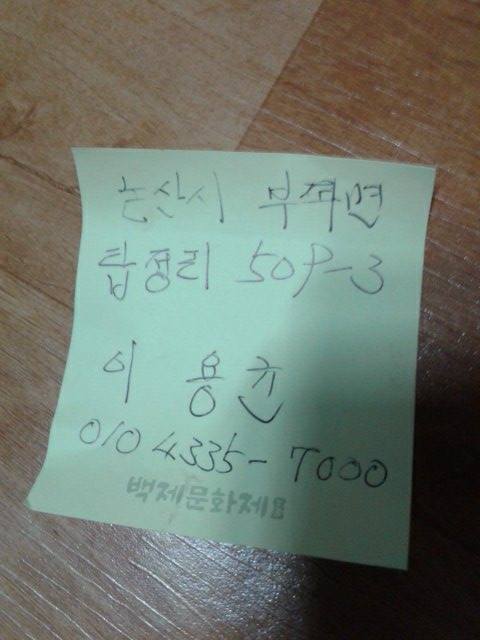 논산시 부적면
탑정리 509-3
이 용균
010 4335-7000
백제문화제